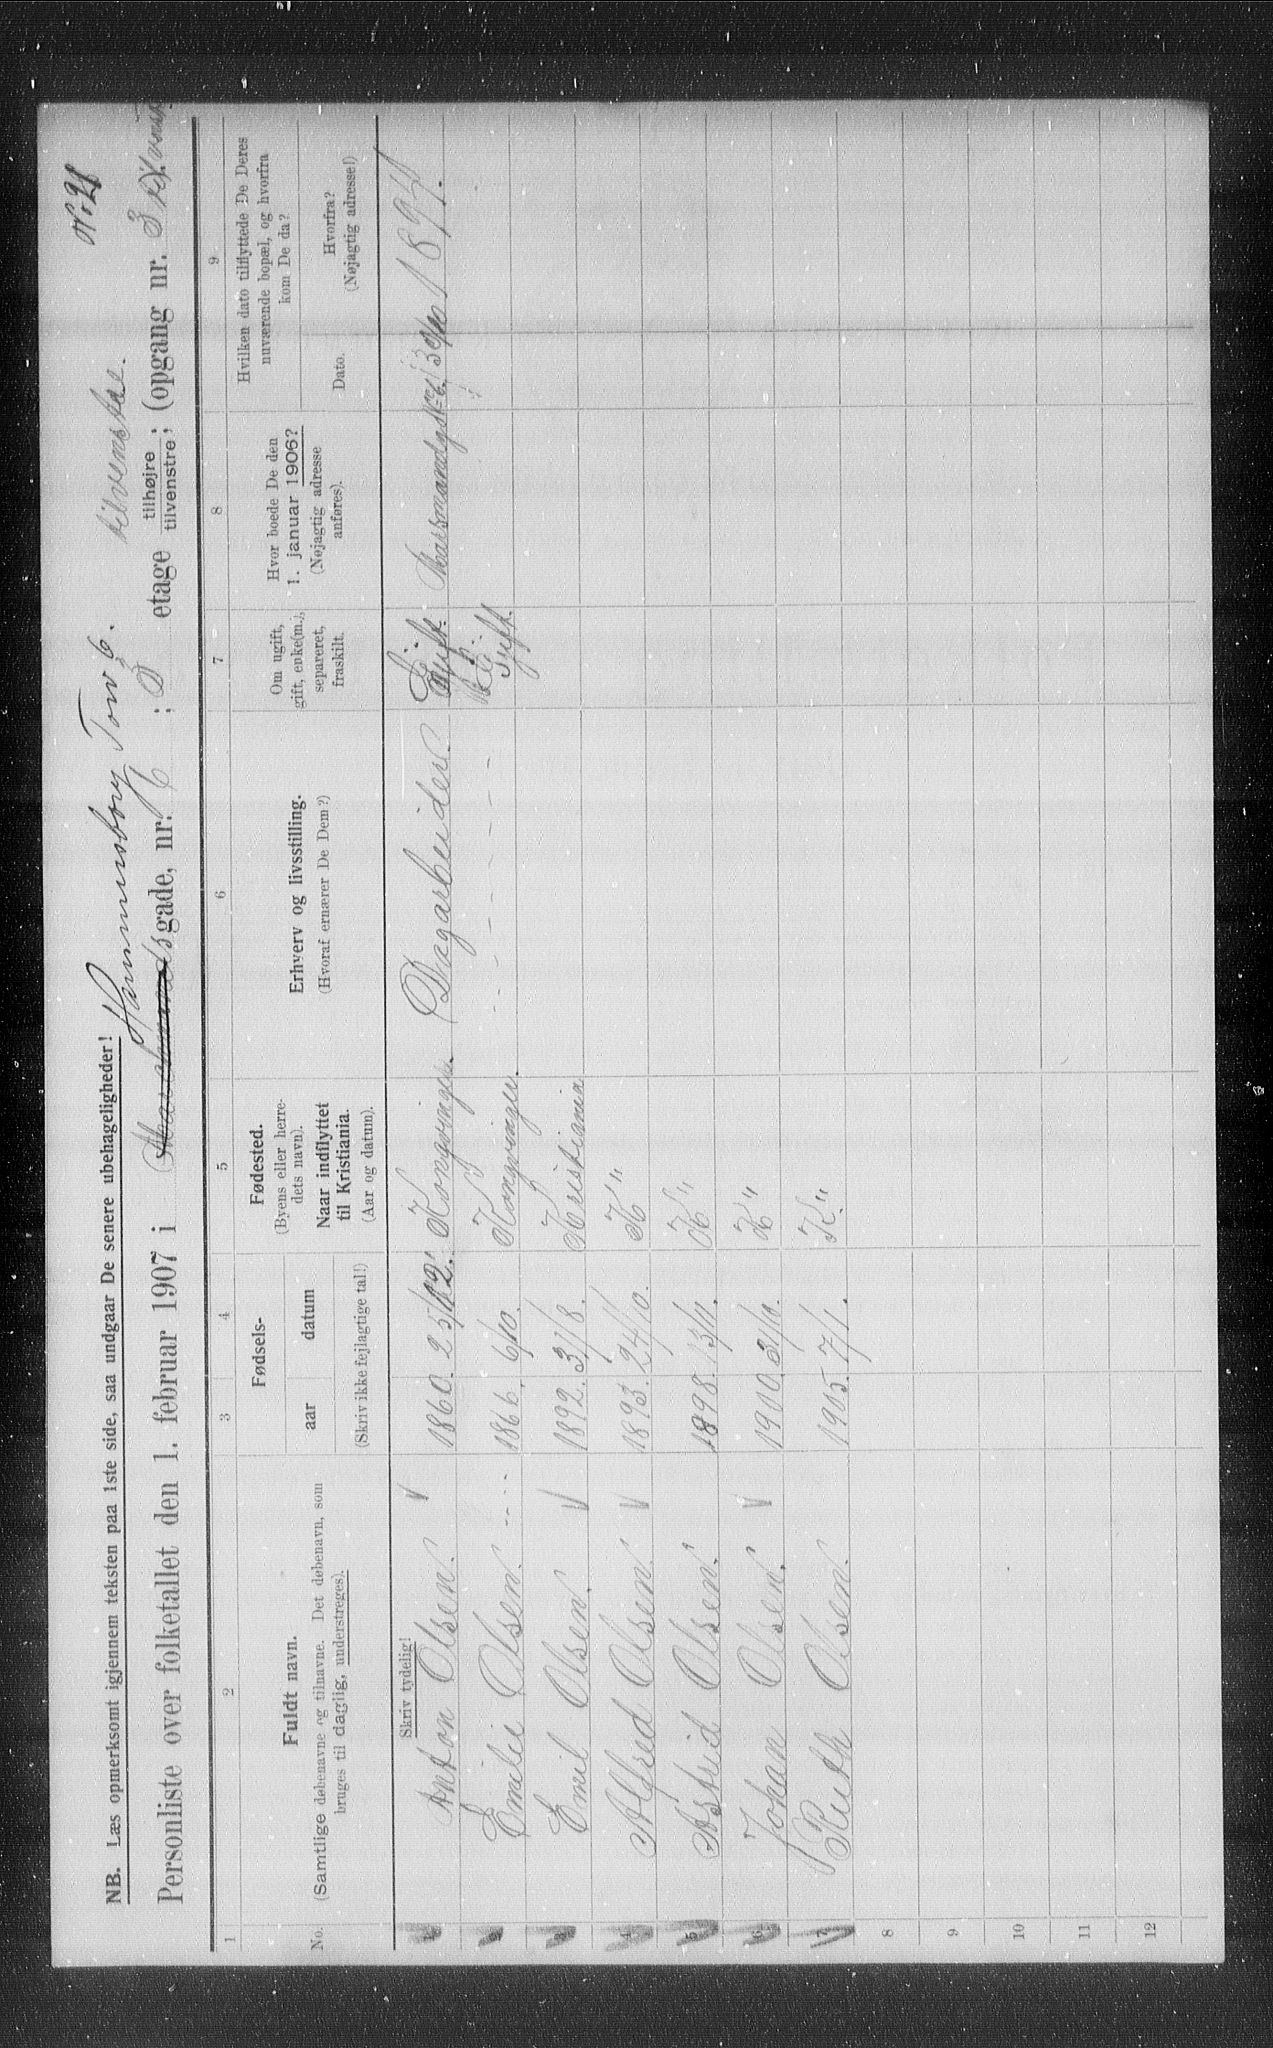 No. 21
NB. Læs opmerksomt igjennem teksten paa 1ste side, saa undgaar De senere ubehageligheder!
Hammersborg Torv 6. tilvenstre.
Personliste over folketallet den 1. februar 1907 i gade, nr. 6; etage tilhøjre tilvenstre; (opgang nr. 3
1 2 3 4 5 6 7 8 9
No.
Fuldt navn.
(Samtlige døbenavne og tilnavne. Det døbenavn, som
bruges til daglig, understreges).
Fødsels-
aar datum
(Skriv ikke fejlagtige tal!)
Fødested.
(Byens eller herre-
dets navn).
Naar indflyttet
til Kristiania.
(Aar og datum).
Erhverv og livsstilling.
(Hvoraf ernærer De Dem?)
Om ugift,
gift, enke(m.),
separeret,
fraskilt.
Hvor boede De den
1. januar 1906?
(Nøjagtig adresse
anføres).
Hvilken dato tilflyttede De Deres
nuværende bopæl, og hvorfra
kom De da?
Dato.
Hvorfra?
(Nøjagtig adresse!)
Skriv tydelig!
1 Anton Olsen. 1860. Kongvinger. Dagarbeider Gift. 1897.
2 Emilie Olsen. 1866. 6/10. Kongvinger. Gift.
3 Emil Olsen. 1892. 31/8. Kristiania
4 Alfred Olsen. 1893. 24/10. K "
5 Astrid Olsen. 1898. 13/11. K "
6 Johan Olsen. 1900. K "
7 Ruth Olsen. 1905. 7/1. K "
8
9
10
11
12